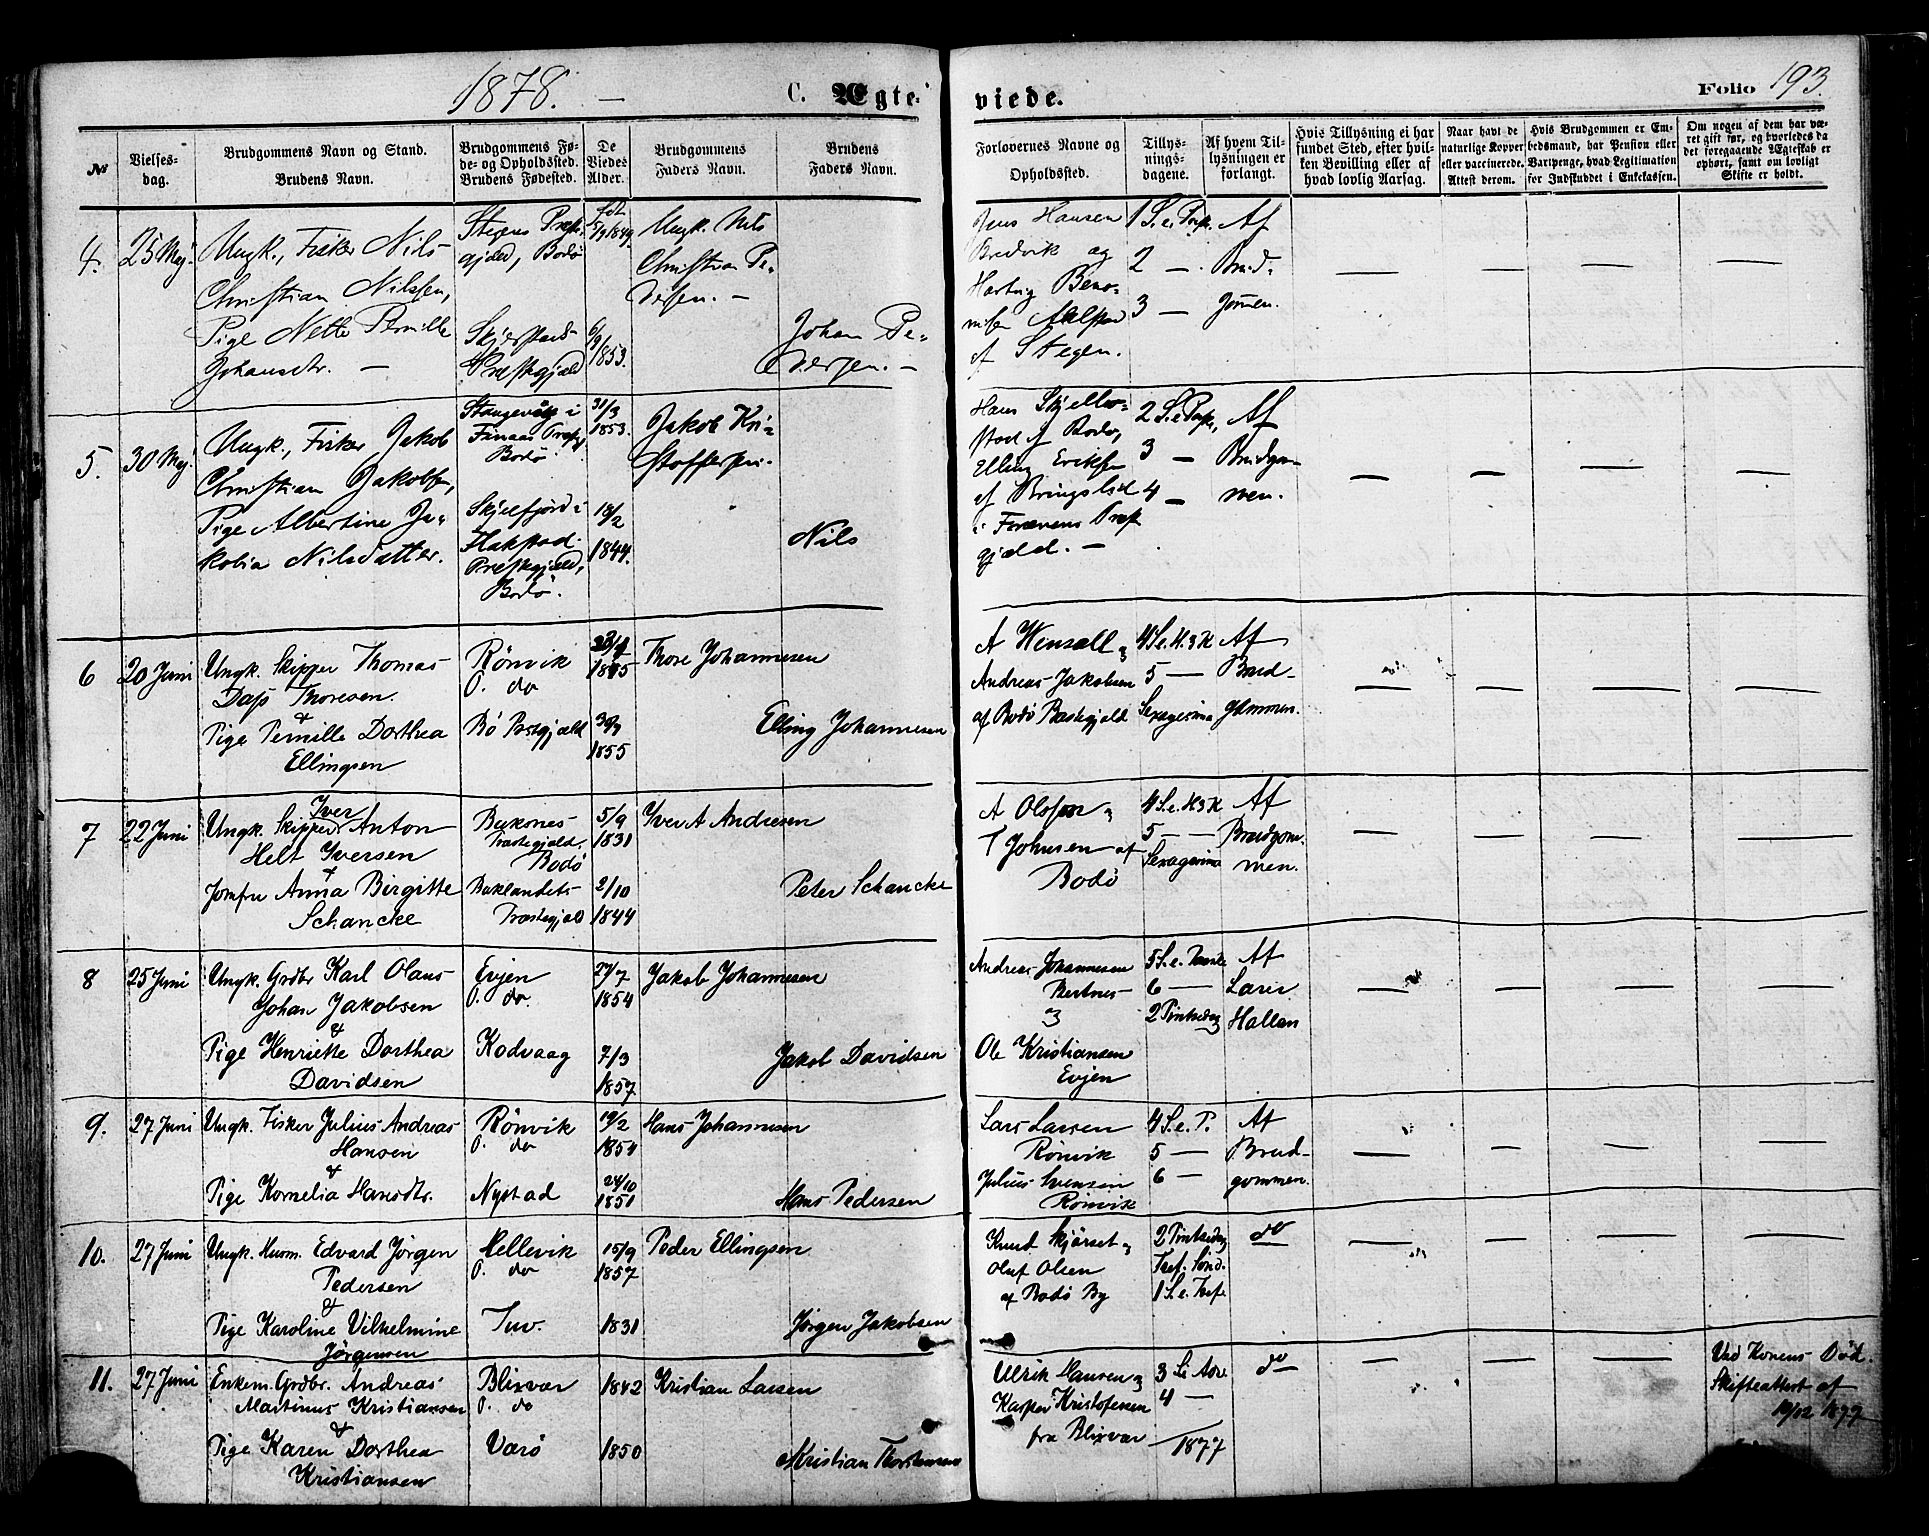 1878. — C. Ægte-
viede. Folio 193.
No
Vielses-
dag.
Brudgommens Navn og Stand.
Brudens Navn.
Brudgommens Fø-
de- og Opholdssted.
Brudens Fødested.
De
Viedes
Alder.
Brudgommens
Faders Navn.
Brudens
Faders Navn.
Forlovernes Navne og
Opholdssted.
Tillys-
nings-
dagene.
Af hvem Til-
lysningen er
forlangt.
Hvis Tillysning ei har
fundet Sted, efter hvil-
ken Bevilling eller af
hvad lovlig Aarsag.
Naar havt de
naturlige Kopper
eller vaccinerede.
Attest derom.
Hvis Brudgommen er Em-
bedsmand, har Pension eller
Vartpenge, hvad Legitimation
for Indskuddet i Enkekassen.
Om nogen af dem har væ-
ret gift før, og hvorledes da
det foregaaende Ægteskab er
ophørt, samt om lovligt
Skifte er holdt.
4. 25 Mej.
Ungk., Fisker Nils
Christian Nilssen,
Pige Nette Pernille
Johansdtr. —
Stegens Præst-
gjæld, Bodø
Skjerstad
Præstegjæld
fdt
5/9 1849
6/9 1853.
Ungk. Nils
Christian Pe-
dersen. —
Johan Pe-
dersen. —
Jens Hansen
Bredvik og
Hartvig
af Stegen.
1 S. e. Paask.
2 —
3 —
Af
Brud-
gommen.
5. 30 Mej.
Ungk., Fisker Jakob
Christian Jakobsen,
Pige Albertine Ja-
kobia Nilsdatter.
i
Præstgj.
Bodø
Skjelfjord i
Flakstad
Præstegjæld,
Bodø.
31/3
1853.
18/2
1844.
Jakob Kri-
stoffersen.
Nils
Hans Skjell-
stad af Bodø,
Elling Eriksen
af Bringslid
i
gjæld. —
2 S. e. Paask,
3 —
4 —
Af
Brudgom
men.
6 20 Juni
Ungk. Skipper Thomas
Dass Thoresen.
&
Pige Pernille Dorthea
Ellingsen
Rönvik
O. do
Bö Præstegjæld
1855
Thore Johannesen
Elling Johannesen
A Wensall og
Andreas Jakobsen
af Bodö Præstegjæld
4 S. e. H. 3 K
5 —
Sexagesima
Af
Brud-
gommen.
7 22 Juni
Iver
Ungk. Skipper Anton
Helt Iversen
&
Jomfru Anna Birgitte
Schancke
Buksnes
Præstegjæld.
Bodö
Baklandets
Præstegjæld
5/9
1831
2/10
1844
Yver A Andresen
Peter Schancke
A Olsen og
T Johnsen af
Bodö
4 S. e. H 3 K
5 —
Sexagesima
Af
Brudgom-
men.
8 25 Juni
Ungk. Grdbr Karl Olaus
Johan Jakobsen
&
Pige Henriette Dorthea
Davidsen
Evjen
O. do.
Kodvaag
27/7
1854
7/3
1857
Jakob Johannesen
Jakob Davidsen
Andreas Johannesen
Bertnes
og
Ole Kristiansen
Evjen
5 S. e. Paaske
6 —
2 Pintsedag
Af
Hallen
9. 27 Juni
Ungk. Fisker Julius Andreas
Hansen
&
Pige Kornelia Hansdtr.
Rönvik
O. do
Nystad
19/2
1854
24/10
1851
Hans Johannesen
Hans Pedersen
Lars Larsen
Rönvik
Julius Svensen
Rönvik
4 S. e. P.
5 —
6 —
Af
Brud-
gommen.
10. 27 Juni
Ungk. Husm. Edvard Jörgen
Pedersen
&
Pige Karoline Vilhelmine
Jörgensen
Hellevik
O. do
Tuv.
15/9
1857
1831
Peder Ellingsen
Jörgen Jakobsen
Knud Skjörset og
Oluf Olsen
af Bodö By
2 Pintsedag
Tref. Sönd.
1 S. e. Tref
do
11. 27 Juni
Enkem. Grdbr. Andreas
Martinus Kristiansen
&
Pige Karen Dorthea
Kristiansen
Blixvær
O. do
Værö
1842
1850
Kristian Larsen
Kristian Thorstensen
Ulrik Hansen og
Kasper Kristofersen
fra Blixvær
3 S. e
4 —
1877
do
Ved Konens Död.
Skifteattest af
19/12 1877